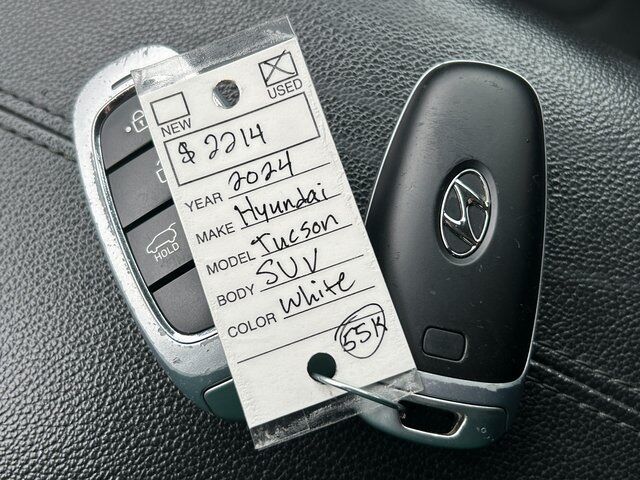 NEW
USED
$2214
YEAR 2024
MAKE Hyundai
MODEL Tucson
BODY SUV
COLOR White
55K
HOLD